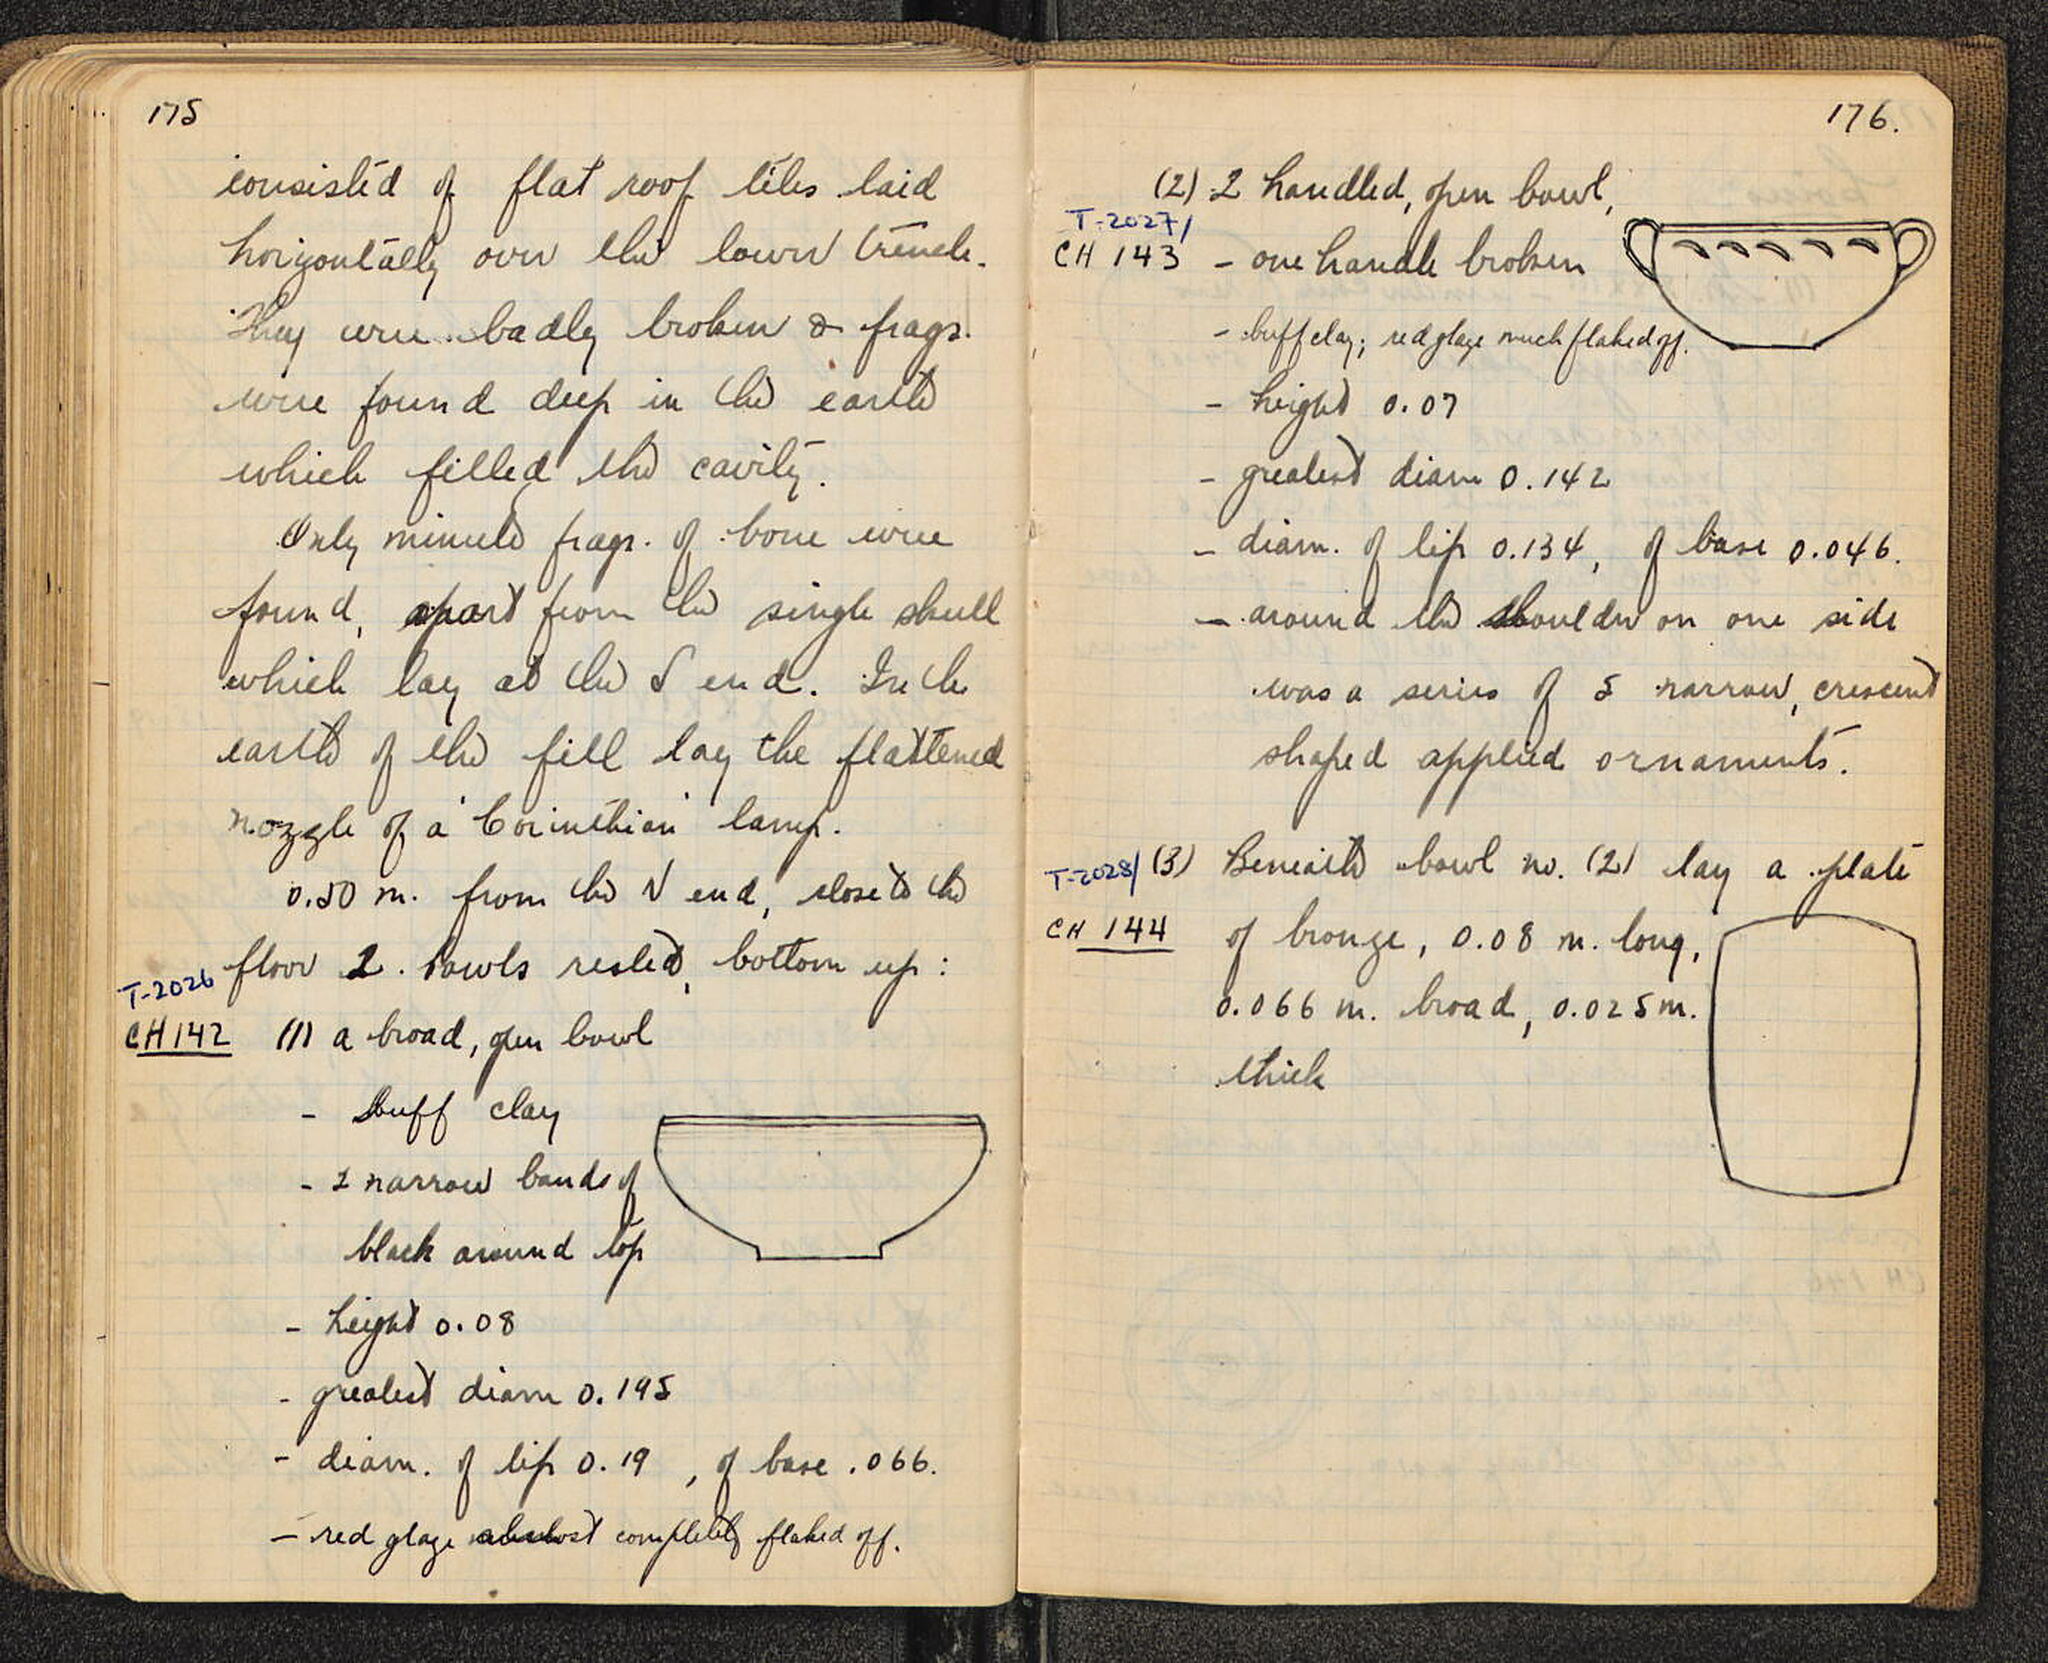 175
consisted of flat roof tiles laid
horizontally over the lower trench.
They were badly broken & frags.
were found deep in the earth
which filled the cavity.
Only minute frags. of bone were
found, apart from the single skull
which lay at the S end. In the
earth of the fill lay the flattened
nozzle of a "Corinthian" lamp.
0.50 m. from the N end, close to the
floor 2 bowls rested, bottom up:
T-2026
CH 142 (1) a broad, open bowl
- buff clay
- 2 narrow bands of
black around top
- height 0.08
- greatest diam 0.195
- diam. of lip 0.19, of base .066.
- red glaze almost completely flaked off.
176.
(2) 2 handled, open bowl,
T-2027/
CH 143 - one handle broken
- buff clay; red glaze much flaked off.
- height 0.07
- greatest diam 0.142
- diam. of lip 0.134, of base 0.046.
- around the shoulder on one side
was a series of 5 narrow, crescent
shaped applied ornaments.
T-2028/ (3) Beneath bowl no. (2) lay a plate
CH 144 of bronze, 0.08 m. long,
0.066 m. broad, 0.025 m.
thick